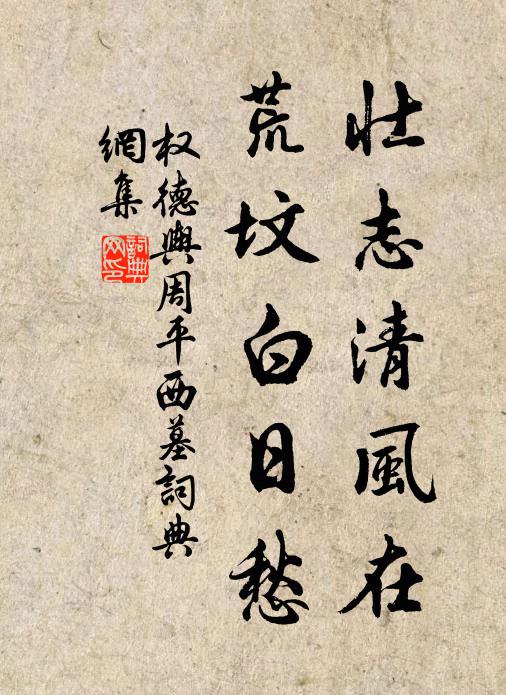 壮志清風在
荒坟白日愁
权德輿周平西墓詞典
網集
詞典
网印